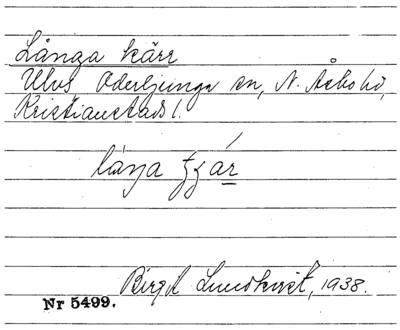 Långa kärr
Ulvs Oderljunga sn, N. Åsbo hd,
Kristianstads l.
Birgit Lundkvist, 1938.
Nr 5499.